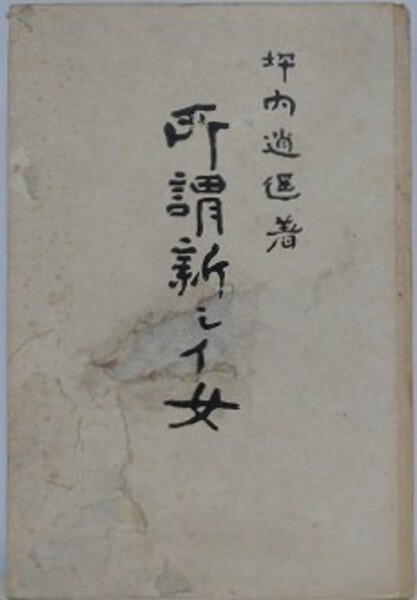 坪内逍遥著
所謂新シイ女